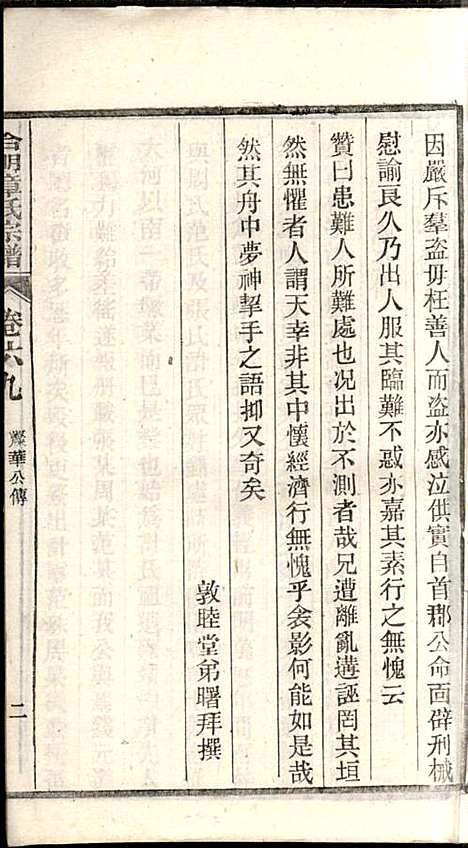 因嚴斥羣盗毋枉善人而盗亦感泣供實自首郡公命面辟刑械
慰諭良久乃出人服其臨難不惑亦嘉其素行之無愧云
贊曰患難人所難處也况出於不測者哉兄遭離亂遘誣罔其坦
然無懼者人謂天幸非其中懷經濟行無愧乎衾影何能如是哉
然其舟中夢神挈手之語抑又奇矣
敦睦堂弟曙拜撰
章氏宗譜
卷六九
燦華公傳
二